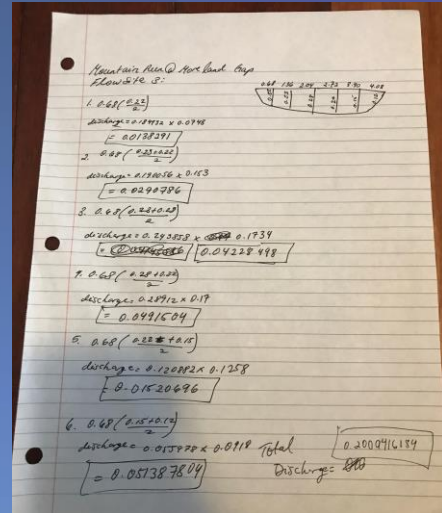 Mountain Run @ Moreland Gap
Flow Site 3:
0.68 1.36 2.04 2.72 3.40 4.08
1. 0.68 (0.22/2)
discharge = 0.184932 x 0.0748
= 0.0138291
2. 0.68 (0.23+0.28/2)
discharge = 0.190056 x 0.153
= 0.0290786
3. 0.68 (0.28+0.28/2)
discharge = 0.243858 x 0.1734
= 0.04228498
4. 0.68 (0.28+0.22/2)
discharge = 0.28912 x 0.17
= 0.0491504
5. 0.68 (0.22+0.15/2)
discharge = 0.120882 x 0.1258
= 0.01520696
6. 0.68 (0.15+0.12/2)
discharge = x 0.0918
= 0.051387804
Total Discharge = 0.2009416134